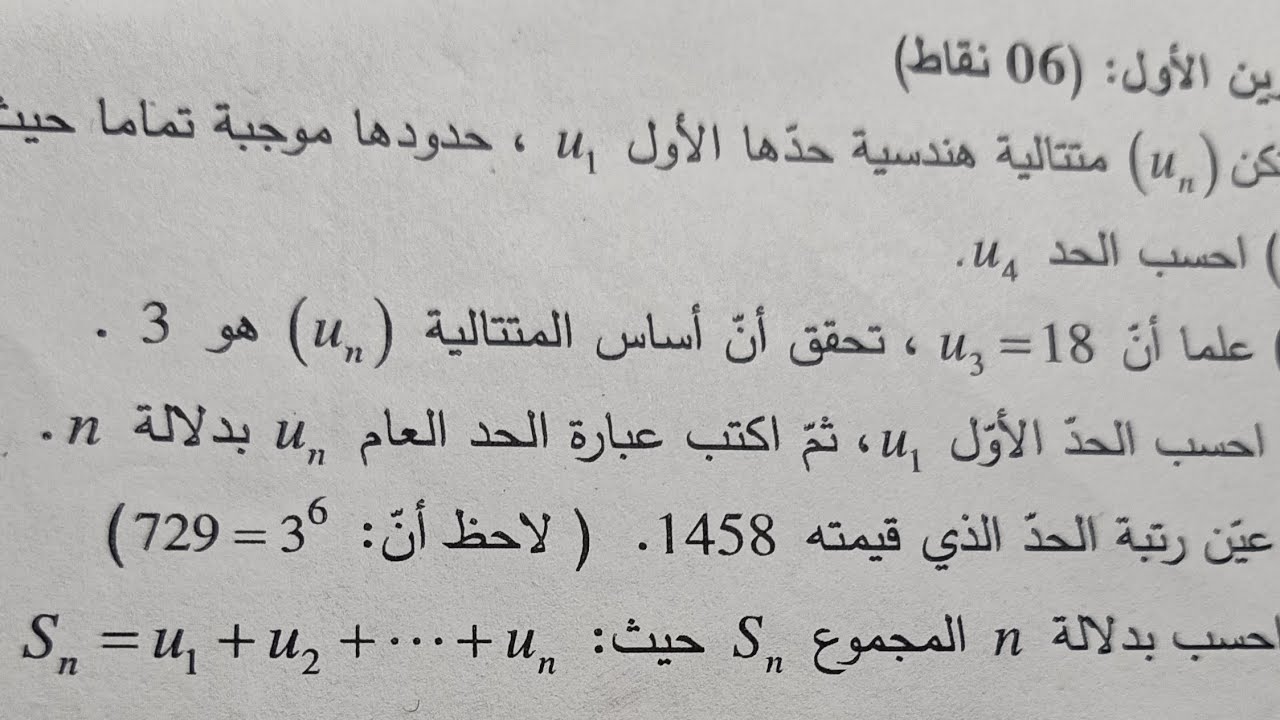 الأول: (06 نقاط)
(uₙ) متتالية هندسية حدّها الأول u₁ ، حدودها موجبة تماما حيث
) احسب الحد u₄.
) علما أنّ u₃ = 18 ، تحقق أنّ أساس المتتالية (uₙ) هو 3 .
احسب الحدّ الأوّل u₁، ثمّ اكتب عبارة الحد العام uₙ بدلالة n.
عيّن رتبة الحدّ الذي قيمته 1458. ( لاحظ أنّ: 729 = 3⁶ )
احسب بدلالة n المجموع Sₙ حيث: Sₙ = u₁ + u₂ + ⋯ + uₙ